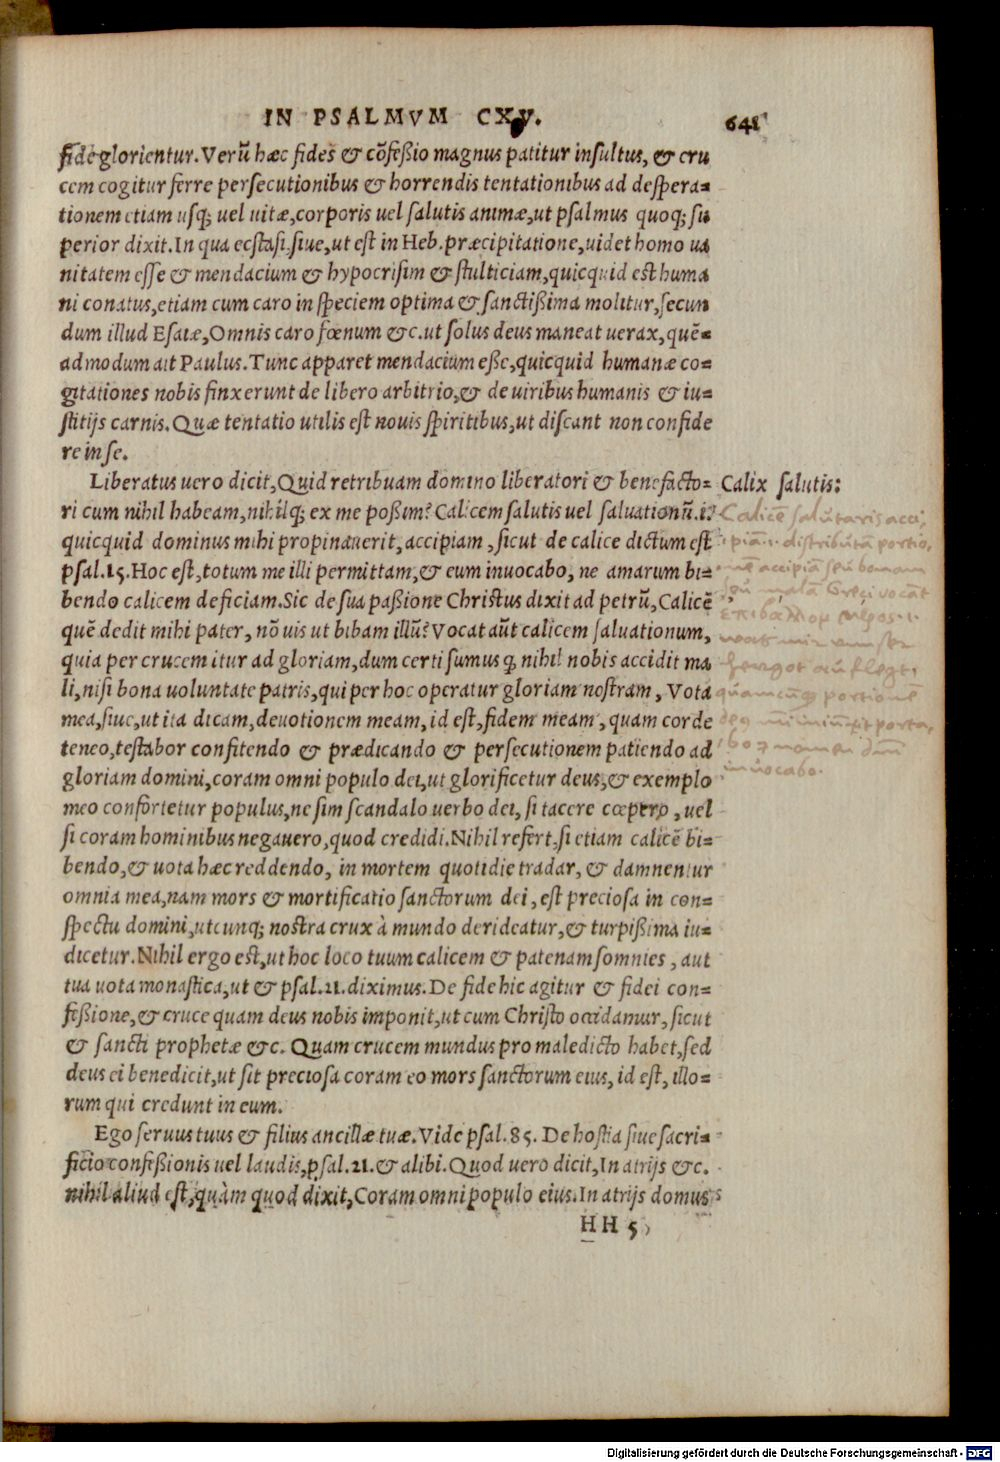 IN PSALMVM CXV. 641
fide glorientur. Verũ hæc fides & cõfeßio magnus patitur insultus, & cru
cem cogitur ferre persecutionibus & horrendis tentationibus ad despera=
tionem etiam usq; uel uitæ, corporis uel salutis animæ, ut psalmus quoq; su
perior dixit. In qua ecstasi. siue, ut est in Heb. præcipitatione, uidet homo ua
nitatem esse & mendacium & hypocrisim & stulticiam, quicquid est huma
ni conatus, etiam cum caro in speciem optima & sanctißima molitur, secun
dum illud Esaiæ, Omnis caro fœnum &c. ut solus deus maneat uerax, quẽ=
admodum ait Paulus. Tunc apparet mendacium eße, quicquid humanæ co=
gitationes nobis finxerunt de libero arbitrio, & de uiribus humanis & iu=
stitijs carnis. Quæ tentatio utilis est nouis spiritibus, ut discant non confide
re in se.
Liberatus uero dicit, Quid retribuam domino liberatori & benefacto=
ri cum nihil habeam, nihilq; ex me poßim? Calicem salutis uel saluationũ .i.
quicquid dominus mihi propinauerit, accipiam, sicut de calice dictum est
psal. 15. Hoc est, totum me illi permittam, & eum inuocabo, ne amarum bi=
bendo calicem deficiam. Sic de sua paßione Christus dixit ad petrũ, Calicẽ
quẽ dedit mihi pater, nõ uis ut bibam illũ? Vocat aũt calicem saluationum,
quia per crucem itur ad gloriam, dum certi sumus q̃ nihil nobis accidit ma
li, nisi bona uoluntate patris, qui per hoc operatur gloriam nostram, Vota
mea, siue, ut ita dicam, deuotionem meam, id est, fidem meam, quam corde
teneo, testabor confitendo & prædicando & persecutionem patiendo ad
gloriam domini, coram omni populo dei, ut glorificetur deus, & exemplo
meo confortetur populus, ne sim scandalo uerbo dei, si tacere cœpero, uel
si coram hominibus negauero, quod credidi. Nihil refert, si etiam calicẽ bi=
bendo, & uota hæc reddendo, in mortem quotidie tradar, & damnentur
omnia mea, nam mors & mortificatio sanctorum dei, est preciosa in con=
spectu domini, utcunq; nostra crux à mundo derideatur, & turpißima iu=
dicetur. Nihil ergo est, ut hoc loco tuum calicem & patenam somnies, aut
tua uota monastica, ut & psal. 21. diximus. De fide hic agitur & fidei con=
feßione, & cruce quam deus nobis imponit, ut cum Christo occidamur, sicut
& sancti prophetæ &c. Quam crucem mundus pro maledicto habet, sed
deus ei benedicit, ut sit preciosa coram eo mors sanctorum eius, id est, illo=
rum qui credunt in eum.
Ego seruus tuus & filius ancillæ tuæ. Vide psal. 85. De hostia siue sacri=
ficio confeßionis uel laudis, psal. 21. & alibi. Quod uero dicit, In atrijs &c.
nihil aliud est, quàm quod dixit, Coram omni populo eius. In atrijs domus
HH 5
Calix salutis:
Calicẽ salutaris acci,
piam .i. distributã portio,
nẽ accipiã seu bonam
seu malã Greci vocãt
ἐπιβάλλον μέρος .i.
quamcũq; portionẽ
inuocabo.
Digitalisierung gefördert durch die Deutsche Forschungsgemeinschaft - DFG